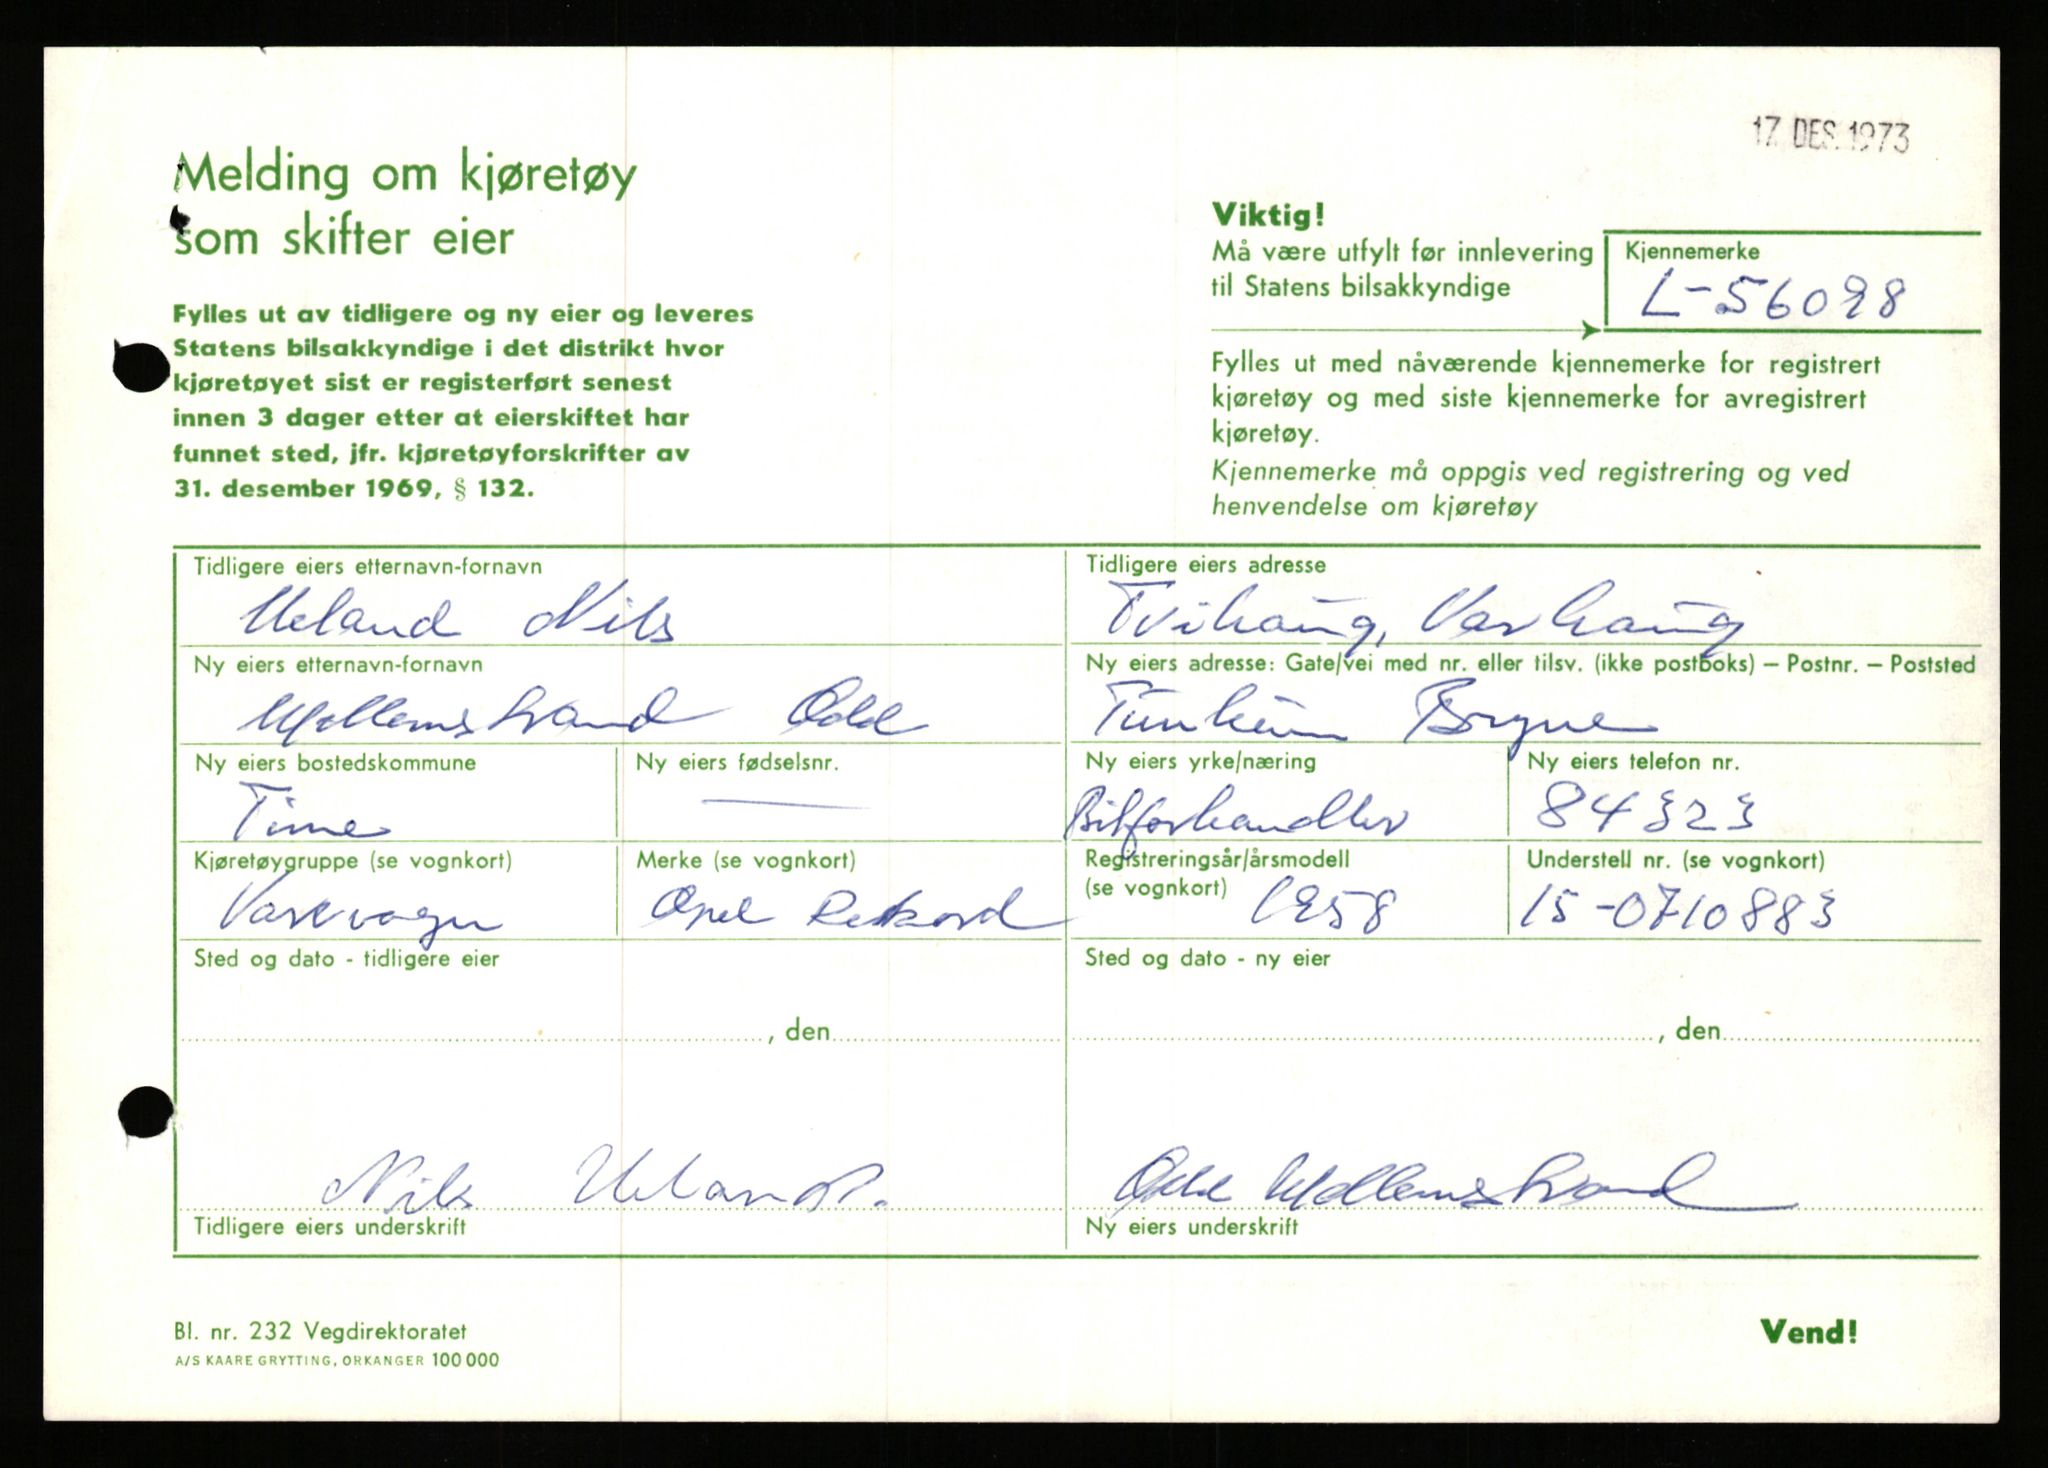 17. DES. 1973
Melding om kjøretøy
som skifter eier
Fylles ut av tidligere og ny eier og leveres
Statens bilsakkyndige i det distrikt hvor
kjøretøyet sist er registerført senest
innen 3 dager etter at eierskiftet har
funnet sted, jfr. kjøretøyforskrifter av
31. desember 1969, § 132.
Viktig!
Må være utfylt før innlevering
til Statens bilsakkyndige
Kjennemerke
L-56098
Fylles ut med nåværende kjennemerke for registrert
kjøretøy og med siste kjennemerke for avregistrert
kjøretøy.
Kjennemerke må oppgis ved registrering og ved
henvendelse om kjøretøy
Tidligere eiers etternavn-fornavn
Ueland Nils
Tidligere eiers adresse
Tvihaug, Varhaug
Ny eiers etternavn-fornavn
Mollemstrand Odd
Ny eiers adresse: Gate/vei med nr. eller tilsv. (ikke postboks) – Postnr. – Poststed
Tunheim Bryne
Ny eiers bostedskommune
Time
Ny eiers fødselsnr.
—
Ny eiers yrke/næring
Bilforhandler
Ny eiers telefon nr.
84323
Kjøretøygruppe (se vognkort)
Varevogn
Merke (se vognkort)
Opel Rekord
Registreringsår/årsmodell
(se vognkort) 1958
Understell nr. (se vognkort)
15-0710883
Sted og dato - tidligere eier
, den
Sted og dato - ny eier
, den
Nils Ueland.
Tidligere eiers underskrift
Odd Mollemstrand
Ny eiers underskrift
Bl. nr. 232 Vegdirektoratet
A/S KAARE GRYTTING, ORKANGER 100 000
Vend!